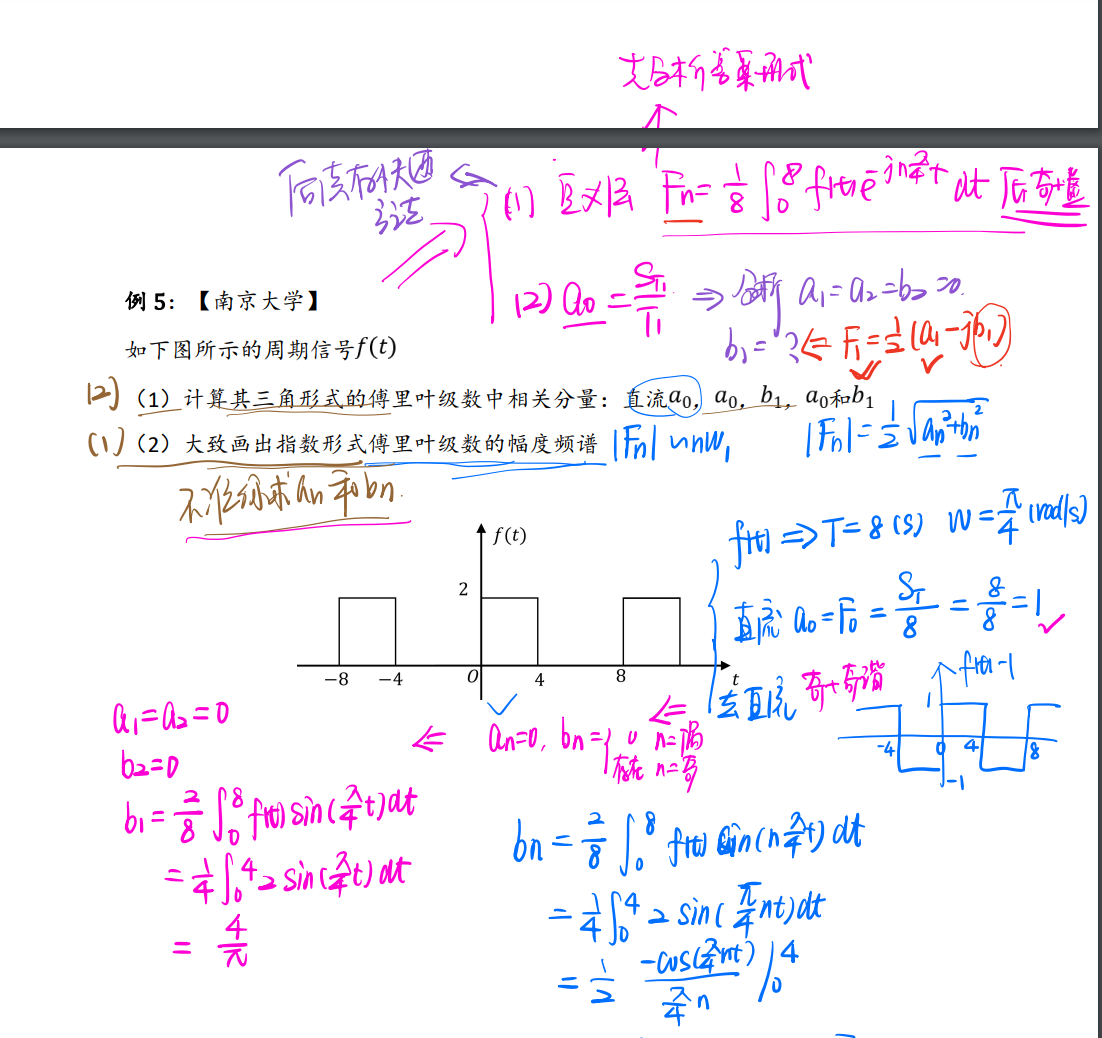 先分析答案形式
(1) 定义法 Fn = 1/8 ∫₀⁸ f(t)e^{-jn π/4 t} dt
(2) a₀ = S_T1/T₁ ⇒ 分析 a₁=a₂=b₂=0.
b₁=? ⇐ F₁=1/2(a₁-jb₁)
例 5：【南京大学】
如下图所示的周期信号f(t)
(2) （1）计算其三角形式的傅里叶级数中相关分量：直流a₀，a₀，b₁，a₀和b₁
(1) （2）大致画出指数形式傅里叶级数的幅度频谱 |Fn| ~ nω₁ |Fn|=1/2 √(an²+bn²)
不准备求an和bn.
f(t) ⇒ T=8(s) W=π/4 (rad/s)
f(t)
2
直流 a₀=F₀=S_T/8=8/8=1
−8 −4 0 4 8 t
去直流 奇+奇谐 f(t)-1
1
-4 0 4 8
-1
a₁=a₂=0 ⇐ an=0, bn={0 n=偶 ⇐
b₂=0 存在 n=奇
b₁=2/8 ∫₀⁸ f(t) sin(π/4 t)dt
=1/4 ∫₀⁴ 2 sin(π/4 t) dt
=4/π
bn=2/8 ∫₀⁸ f(t) sin(n π/4 t) dt
=1/4 ∫₀⁴ 2 sin(π/4 nt)dt
=1/2 -cos(π/4 nt)/(π/4 n) |₀⁴